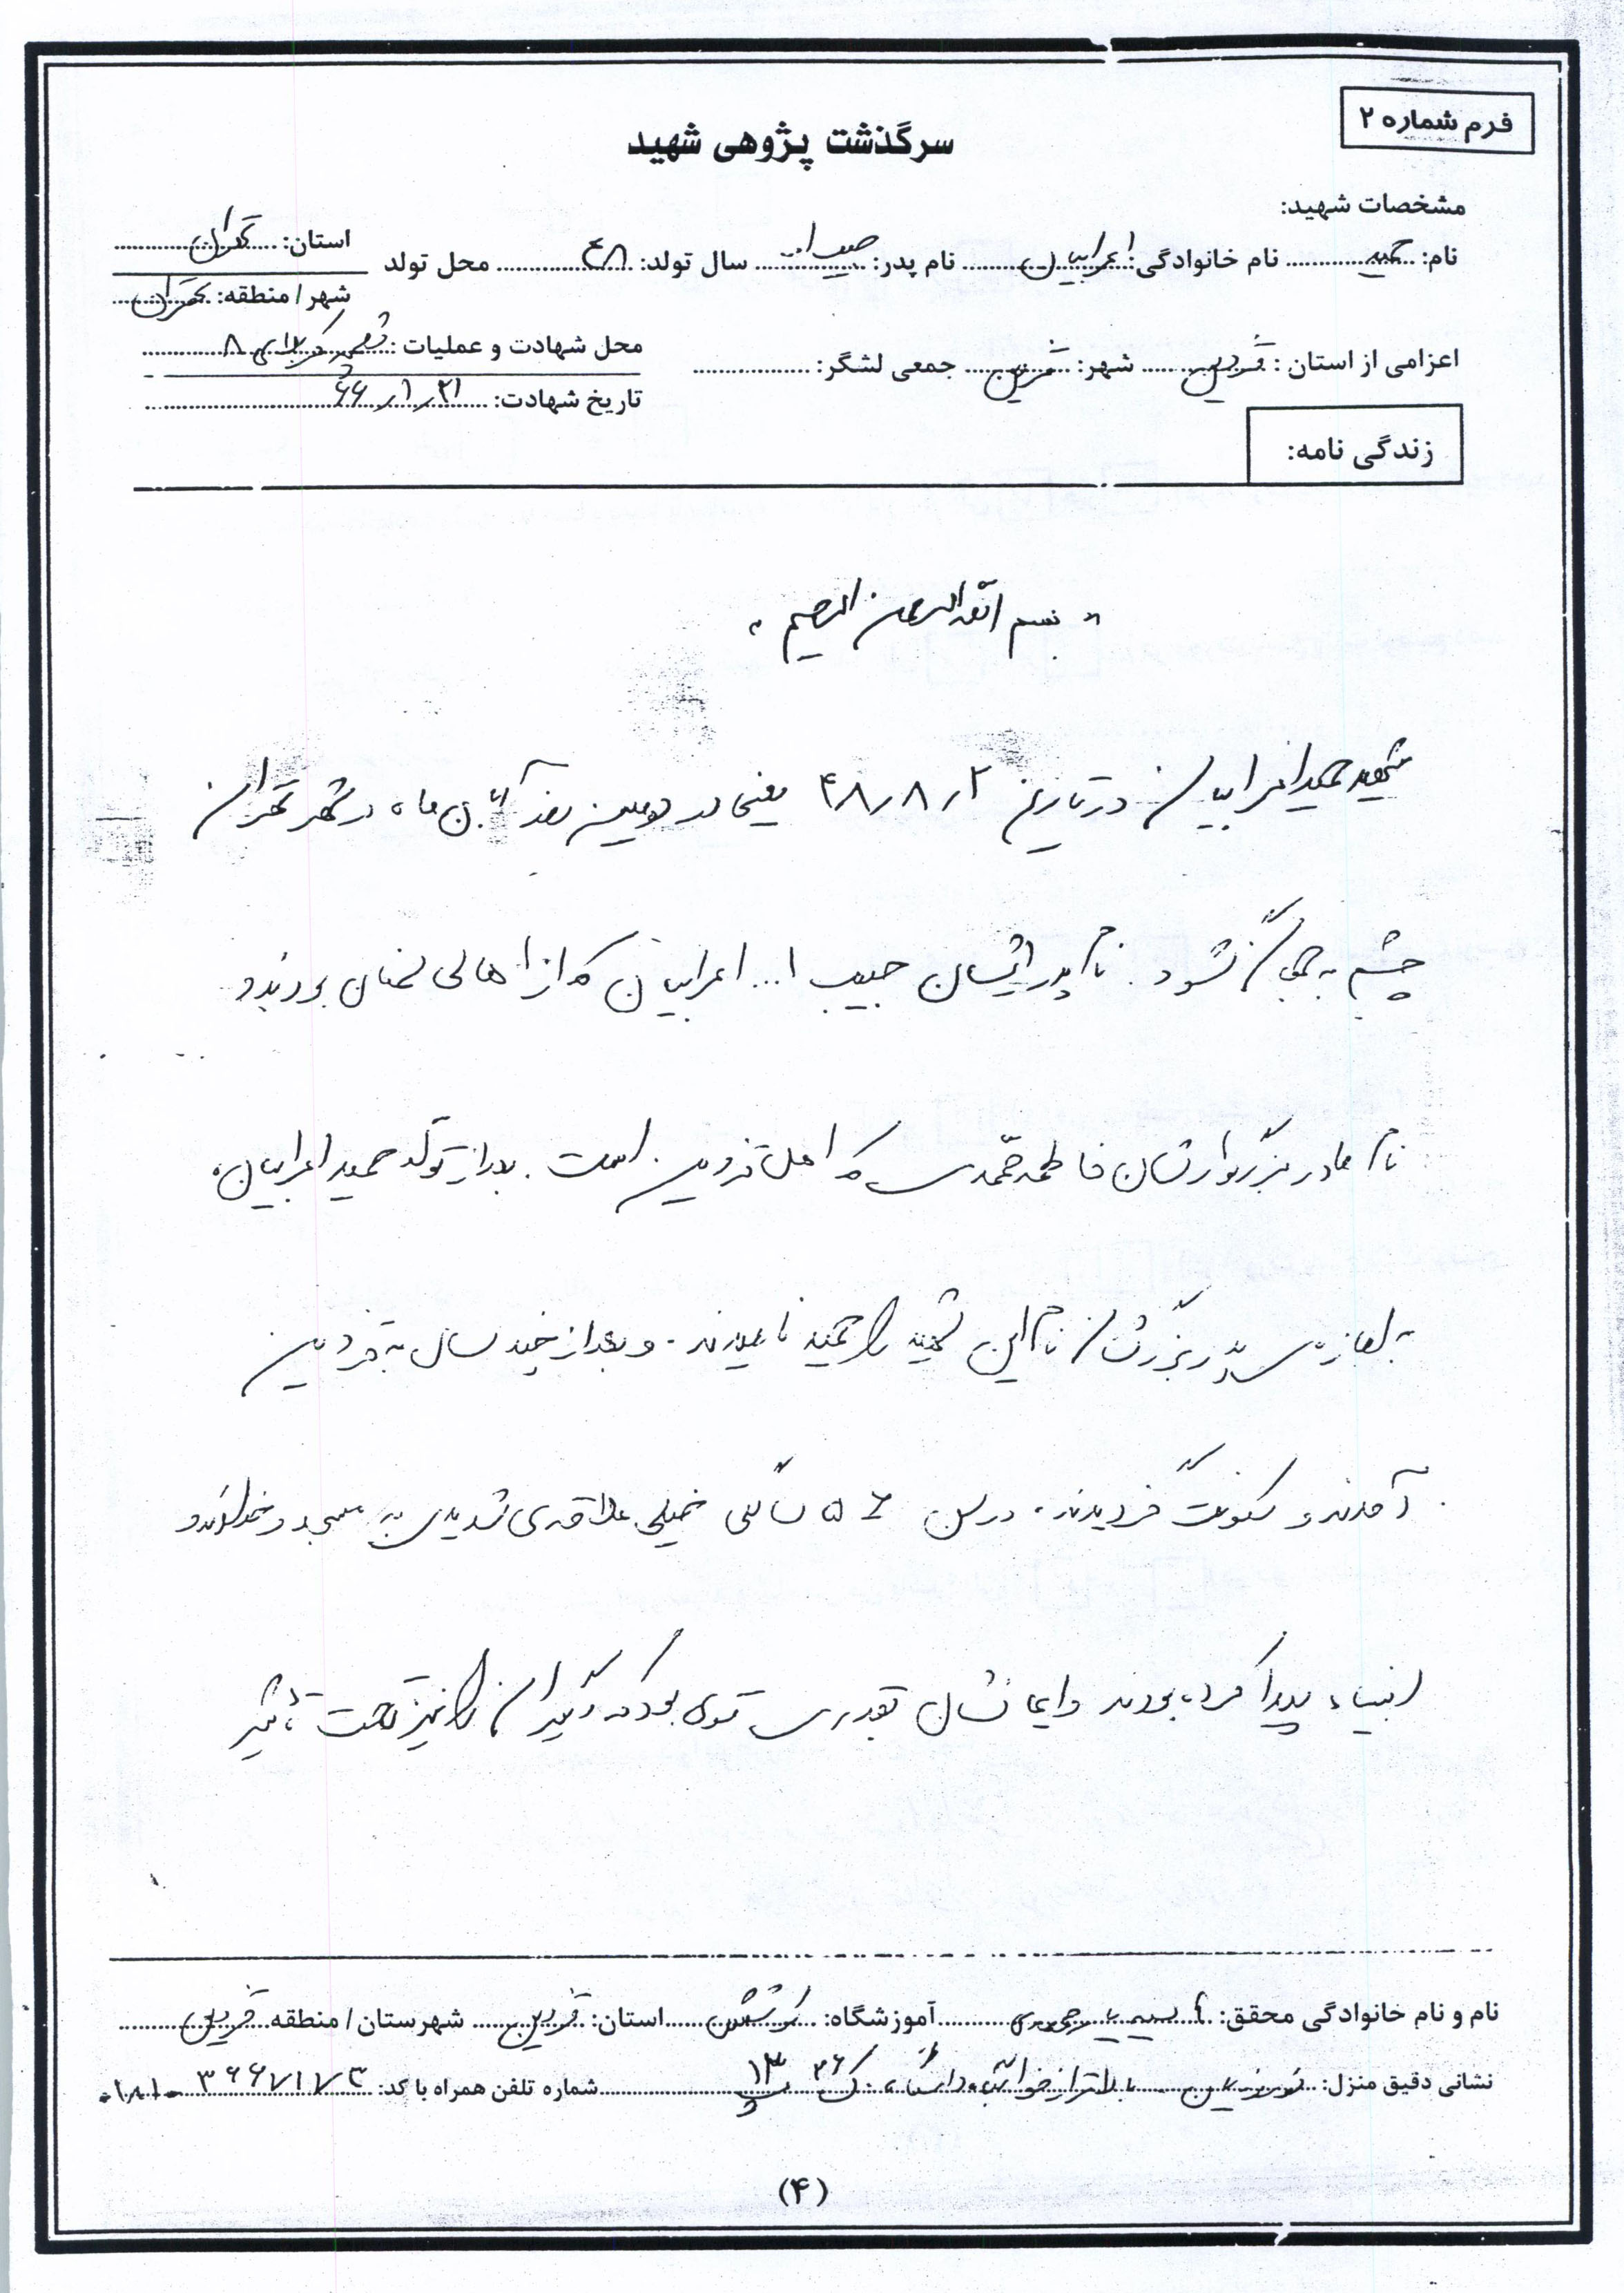 فرم شماره ۲
سرگذشت پژوهی شهید
مشخصات شهید:
نام: حمید نام خانوادگی: اعرابیان نام پدر: حبیب ا... سال تولد: ۴۸ محل تولد استان: تهران
شهر / منطقه: تهران
اعزامی از استان : قزوین شهر: قزوین جمعی لشگر: محل شهادت و عملیات : کربلای ۸
تاریخ شهادت: ۲۱ / ۱ / ۶۶
زندگی نامه:
« بسم الله الرحمن الرحیم »
شهید حمید اعرابیان در تاریخ ۲ / ۸ / ۴۸ یعنی در دومین روز آبان ماه در شهر تهران
چشم به جهان گشود . نام پدر ایشان حبیب ا... اعرابیان که از اهالی بودند و
نام مادر بزرگوارشان فاطمه محمدی که اهل قزوین است . بعد از تولد حمید اعرابیان ،
به اجازه ی پدر بزرگشان نام این شهید را حمید نامیدند . و بعد از چند سال به قزوین
آمدند و سکونت گزیدند . در سن ۵ سالگی خیلی علاقه ی شدیدی به مسجد و خداوند و
انبیاء پیدا کرده بودند و ایمانشان بقدری قوی بود که دیگران را نیز تحت تأثیر
نام و نام خانوادگی محقق: آموزشگاه: کوشش استان: قزوین شهرستان / منطقه قزوین
نشانی دقیق منزل: بالاتر از خوابگاه دانشگاه ک ۲۶ پ ۱۳ شماره تلفن همراه با کد: ۳۶۶۷۱۷۳ - ۰۲۸۱
(۴)